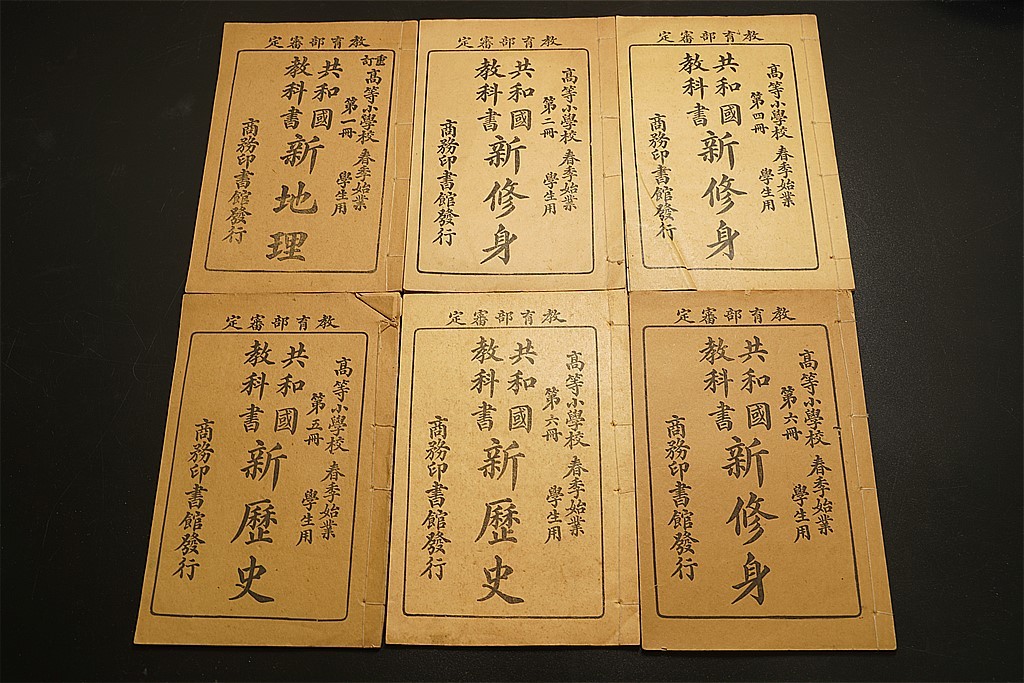 教育部審定
重訂
高等小學校 春季始業
第一冊 學生用
共和國
教科書
新地理
商務印書館發行
教育部審定
高等小學校 春季始業
第二冊 學生用
共和國
教科書
新修身
商務印書館發行
教育部審定
高等小學校 春季始業
第四冊 學生用
共和國
教科書
新修身
商務印書館發行
教育部審定
高等小學校 春季始業
第五冊 學生用
共和國
教科書
新歷史
商務印書館發行
教育部審定
高等小學校 春季始業
第六冊 學生用
共和國
教科書
新歷史
商務印書館發行
教育部審定
高等小學校 春季始業
第六冊 學生用
共和國
教科書
新修身
商務印書館發行